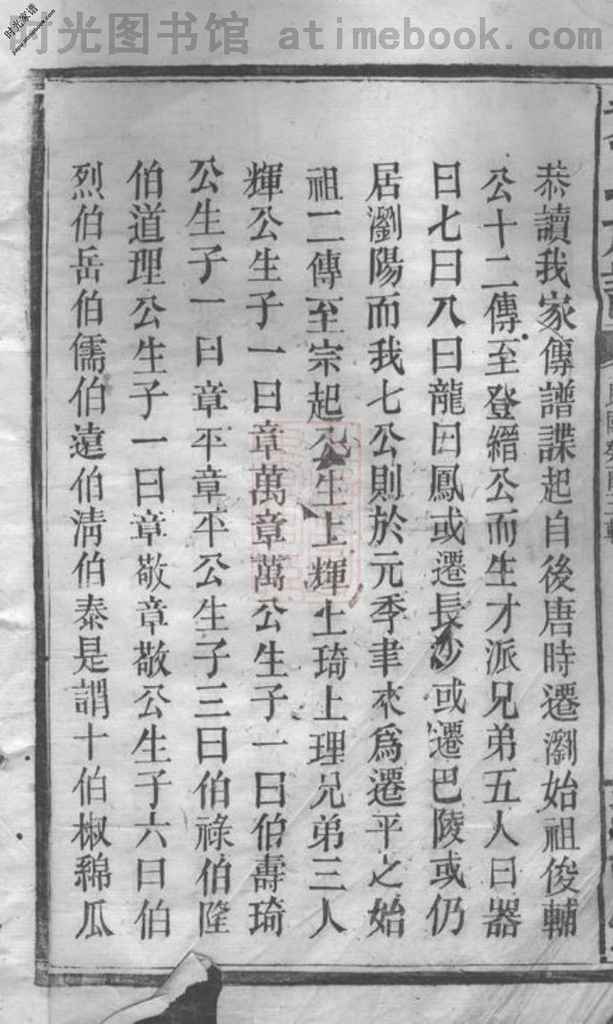 时光图书馆 atimebook.com
时光家谱
恭讀我家傳譜諜起自後唐時遷瀏始祖俊輔
公十二傳至登縉公而生才派兄弟五人曰器
曰七曰八曰龍曰鳳或遷長沙或遷巴陵或仍
居瀏陽而我七公則於元季聿來為遷平之始
祖二傳至宗起公生上輝上琦上理兄弟三人
輝公生子一曰章萬章萬公生子一曰伯壽琦
公生子一曰章平章平公生子三曰伯祿伯隆
伯道理公生子一曰章敬章敬公生子六曰伯
烈伯岳伯儒伯遠伯清伯泰是謂十伯椒綿瓜